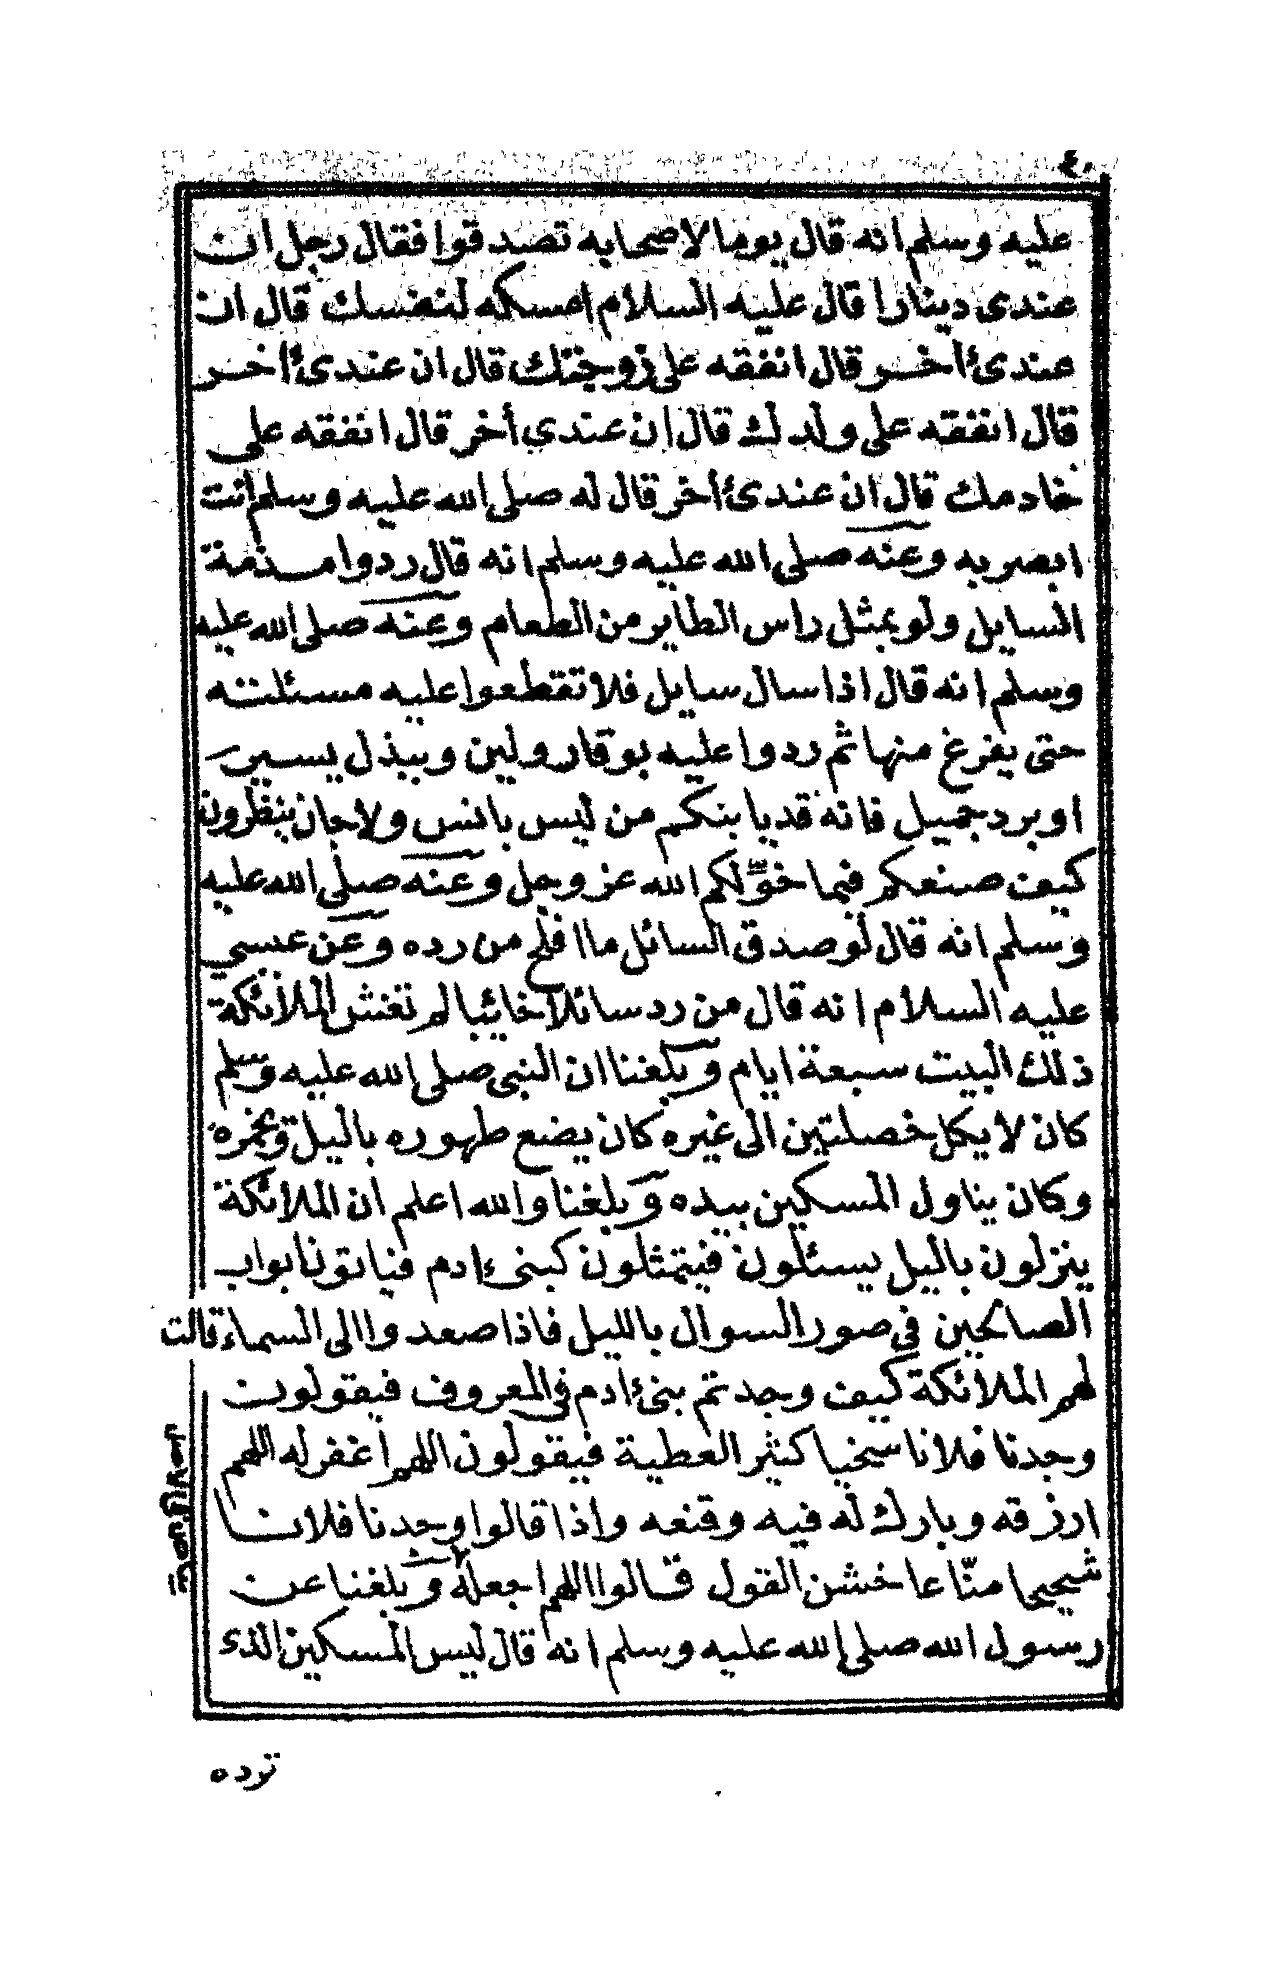 ٤٠
عليه وسلم انه قال يوما لاصحابه تصدقوا فقال رجل ان
عندى دينارا قال عليه السلام امسكه لنفسك قال ان
عندىٔ اخر قال انفقه على زوجتك قال ان عندىٔ اخر
قال انفقه على ولدك قال ان عندي أخر قال انفقه على
خادمك قال ان عندىٔ أخر قال له صلى الله عليه وسلم أنت
ابصر به وعنه صلى الله عليه وسلم انه قال ردوا مذمة
السايل ولو بمثل راس الطاير من الطعام وعنه صلى الله عليه
وسلم انه قال اذا سال سايل فلا تقطعوا عليه مسئلته
حتى يفرغ منها ثم ردوا عليه بوقار ولين وببذل يسير
او برد جميل فانه قد ياتيكم من ليس بانس ولا جان ينظرون
كيف صنعكم فيما خوّلكم الله عز وجل وعنه صلى الله عليه
وسلم انه قال لو صدق السائل ما افلح من رده وعن عيسي
عليه السلام انه قال من رد سائلا خائبا لم تغش الملائكة
ذلك البيت سبعة ايام وبلغنا ان النبى صلى الله عليه وسلم
كان لا يكل خصلتين الى غيره كان يضع طهوره بالليل ويخمره
وكان يناول المسكين بيده وبلغنا والله اعلم ان الملائكة
ينزلون بالليل يسئلون فيتمثلون كبنى ءادم فياتون ابواب
الصالحين في صور السوال بالليل فاذا صعدوا الى السماء قالت
لهم الملائكة كيف وجدتم بنىٔ ادم فى المعروف فيقولون
وجدنا فلانا سخيا كثير العطية فيقولون اللهم أغفر له اللهم
ارزقه وبارك له فيه وقنعه واذا قالوا وجدنا فلانا
شحيحا منّاعا خشن القول قالوا اللهم اجعله وبلغنا عن
رسول الله صلى الله عليه وسلم انه قال ليس المسكين الذى
ترده
بياض في الاصل